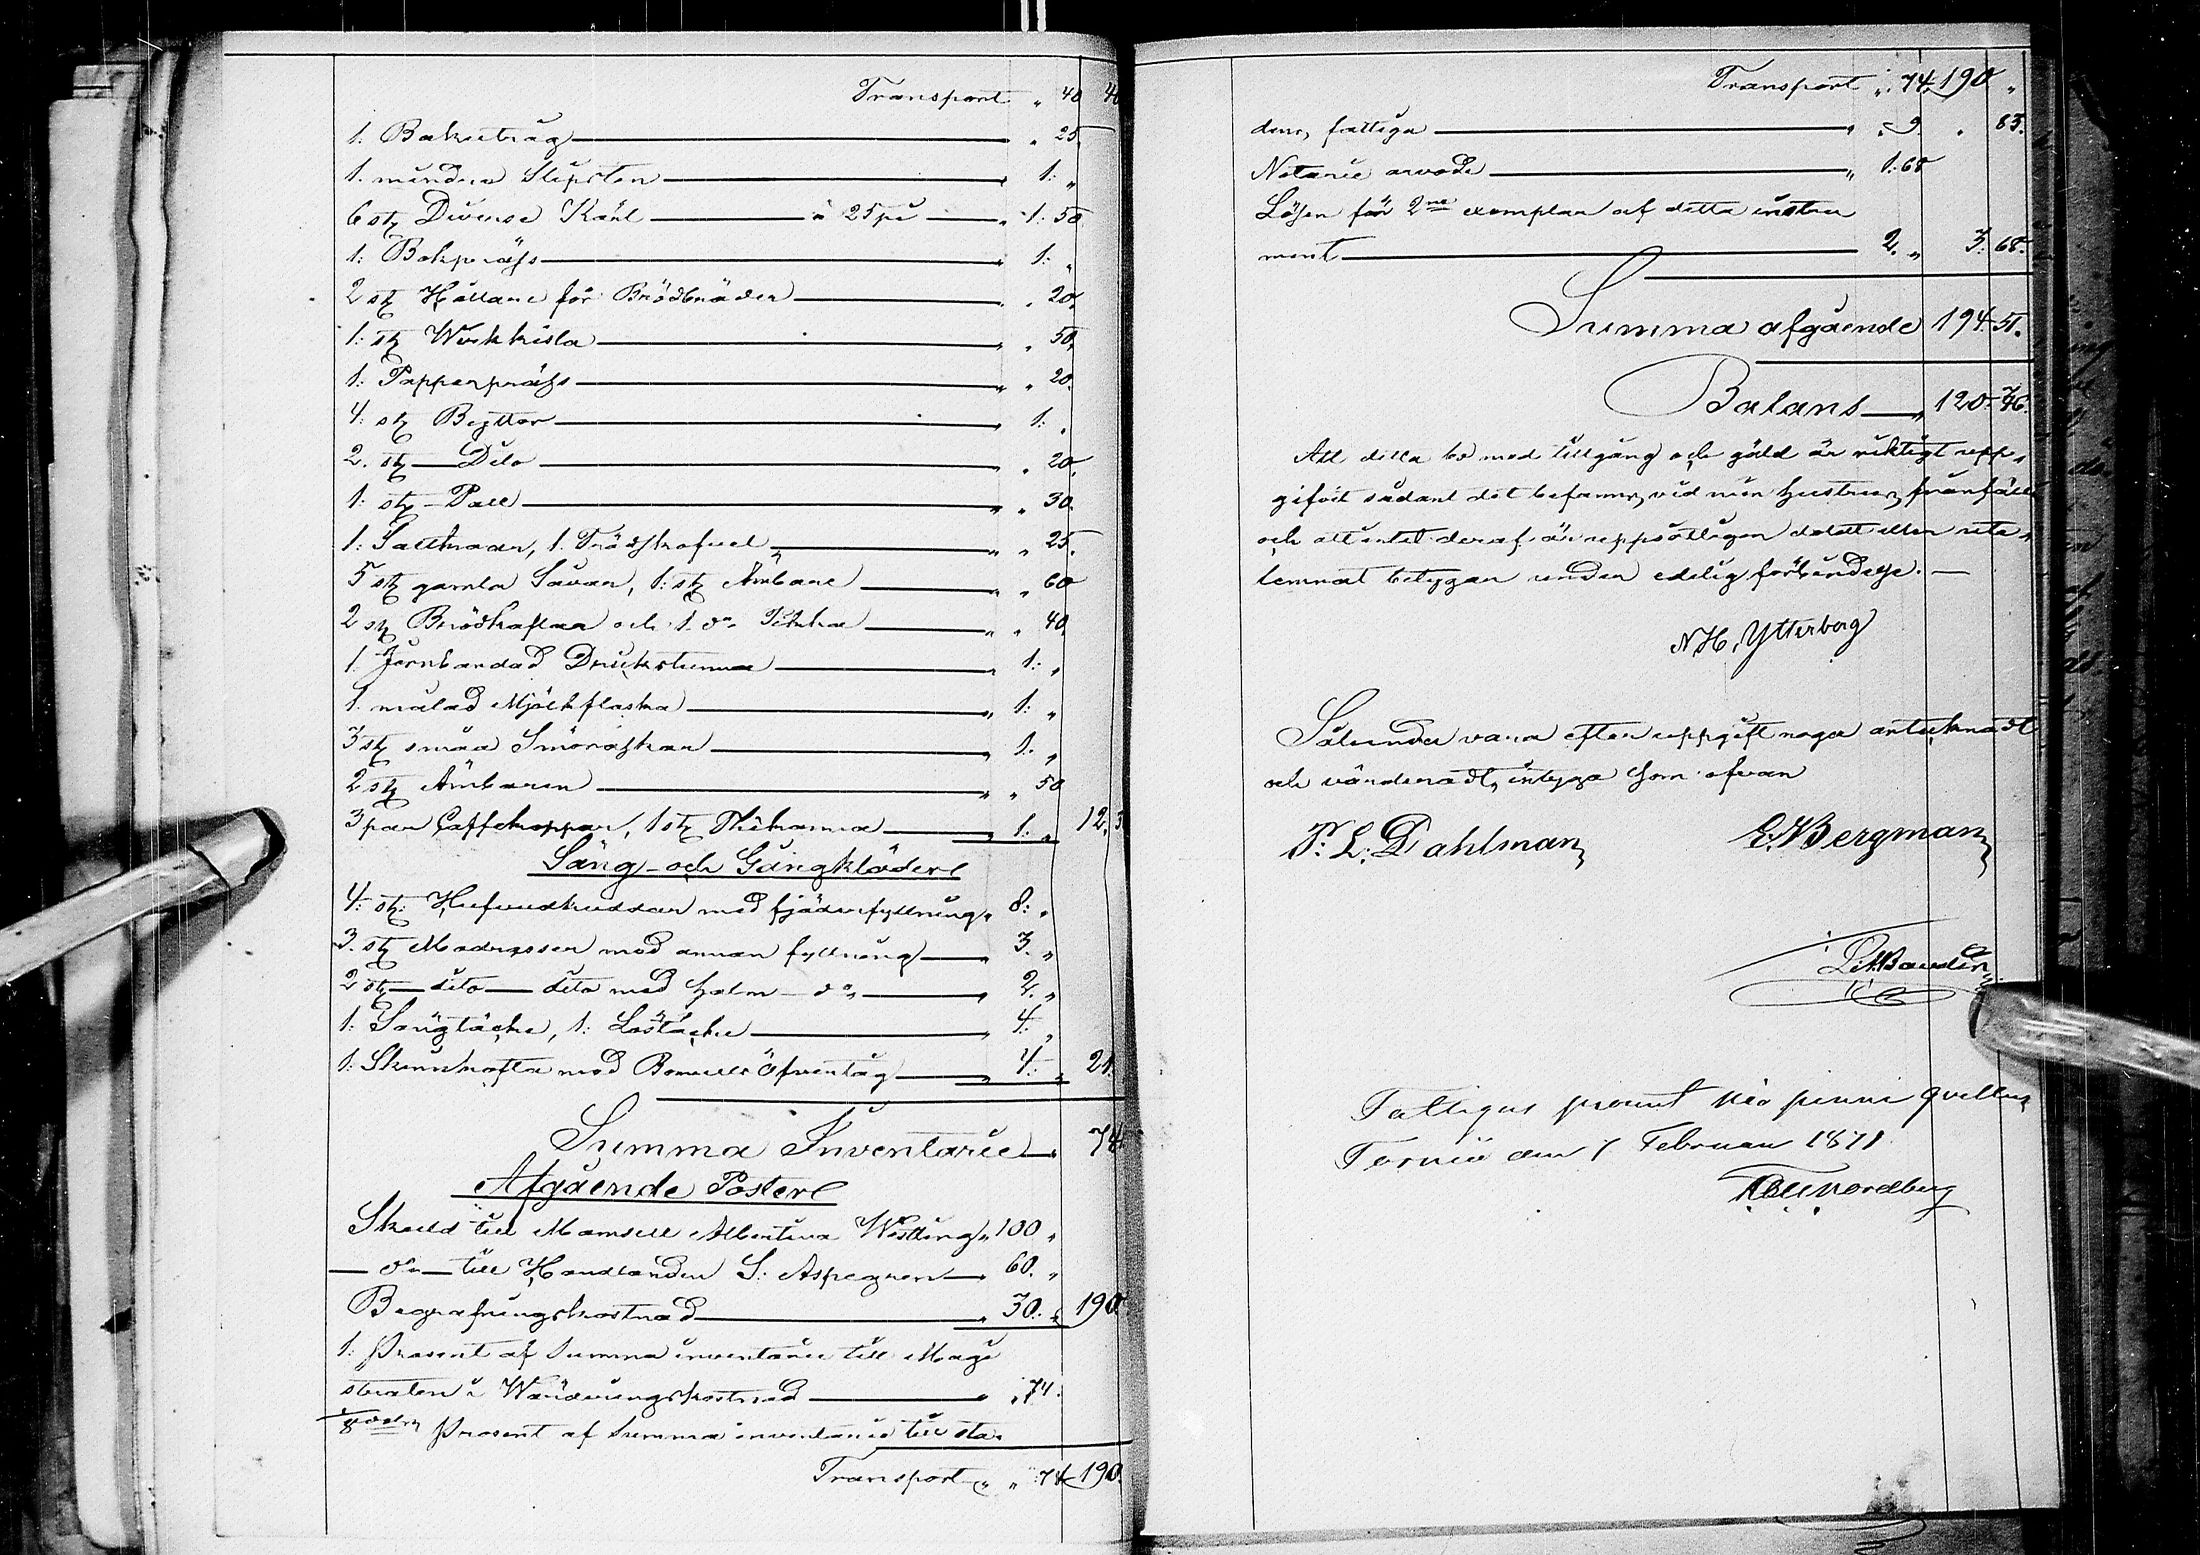 Transport " 40 40
1: Baketråg " 25.
1. mindre Slipsten 1: "
6 st Diverse Kärl à 25 pi " 1: 50
1: Bakpräss 1: "
2 st Hållare för Brödbräder " 20.
1: st Werkkista " 50.
1: Papperpräss " 20.
4: st Byttor 1: "
2. st Dito " 20
1: st Pall " 30.
1: Salthaar, 1. Trädskofvel " 25.
5 st gamla Såvar, 1: st Ämbare " 60
2 st Brödkaflar och 1 do 40.
1. Jernbandad Drickstunna 1: "
1. målad Mjölkflaska " 1: "
3 st små Smöraskar 1. "
2 st Ämbaren " 50
3 par Caffekoppar, 1 st Thékanna 1: " 12. 3
Säng- och Gångkläder
4: st: Hufvudkuddar med fjäderfyllning " 8: "
3. st Madrasser med annan fyllning 3. "
2 st dito dito med halm do 2. "
1: Sängtäcke, 1: Löstäcke 4: "
1: Skinnkofta med Bomulls Öfvertåg " 4: " 21.
Summa Inventarie 74.
Afgående Poster
Skuld till Mamsell Albertina Westling " 100 "
do till Handlanden S: Aspegren 60. "
Begrafningskostnad " 30. " 190.
1: Prosent af Summa inventarie till Magi
straten i Wärderingskostnad " 74.
1/8 Prosent af Summa inventarie till sta-
Transport " " 74 190.
Transport " 74. 190 "
dens fattiga " " 9. " 83.
Notarie arvode " 1: 68
Lösen för 2ne exemplar af detta instru
ment 2. " 3: 68.
Summa afgående 194 51.
Balans " 120. 76.
Att detta bo med tillgång och gäld är riktigt upp-
gifvit sådant det befanns vid min hustrus frånfälle
och att intet deraf är uppsåtligen doldt eller ute-
lemnat betygar under edelig förbindelse. —
N. H. Ytterberg
Sålunda vara efter uppgift noga antecknadt
och värderadt, intyga som ofvan
P: L: Dahlman E. Bergman
Fattigas procent nio penni qvitteras
Torneå den 7 Februari 1871.
Nordberg